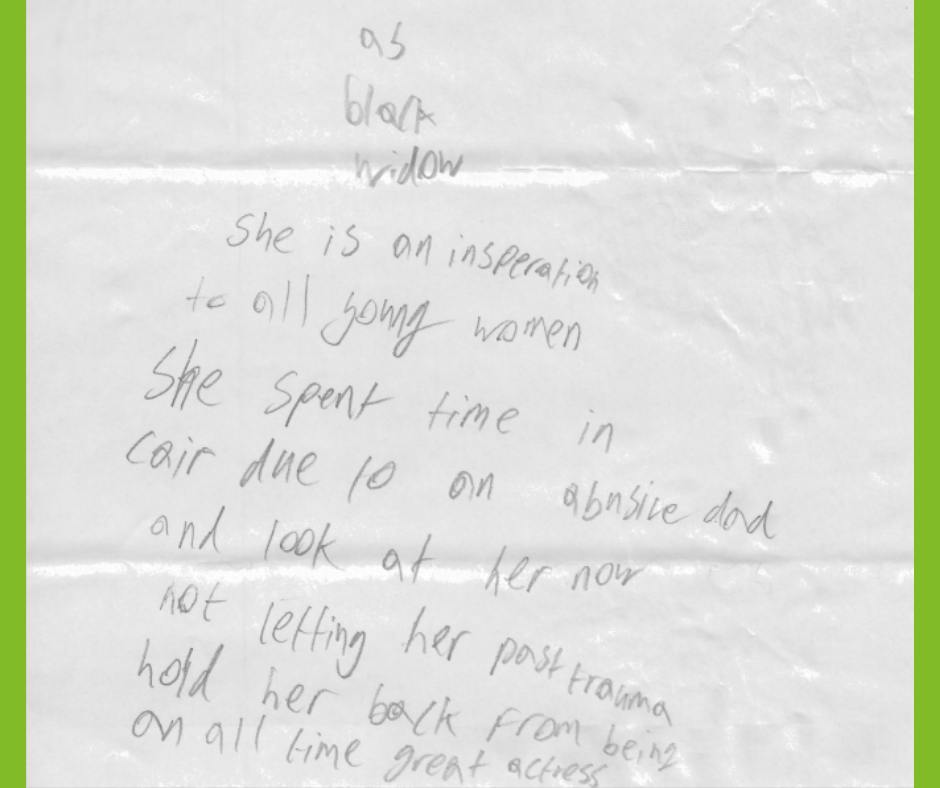 as
black
widow
She is an insperation
to all young women
She spent time in
cair due to an abusive dad
and look at her now
not letting her past trauma
hold her back from being
an all time great actress